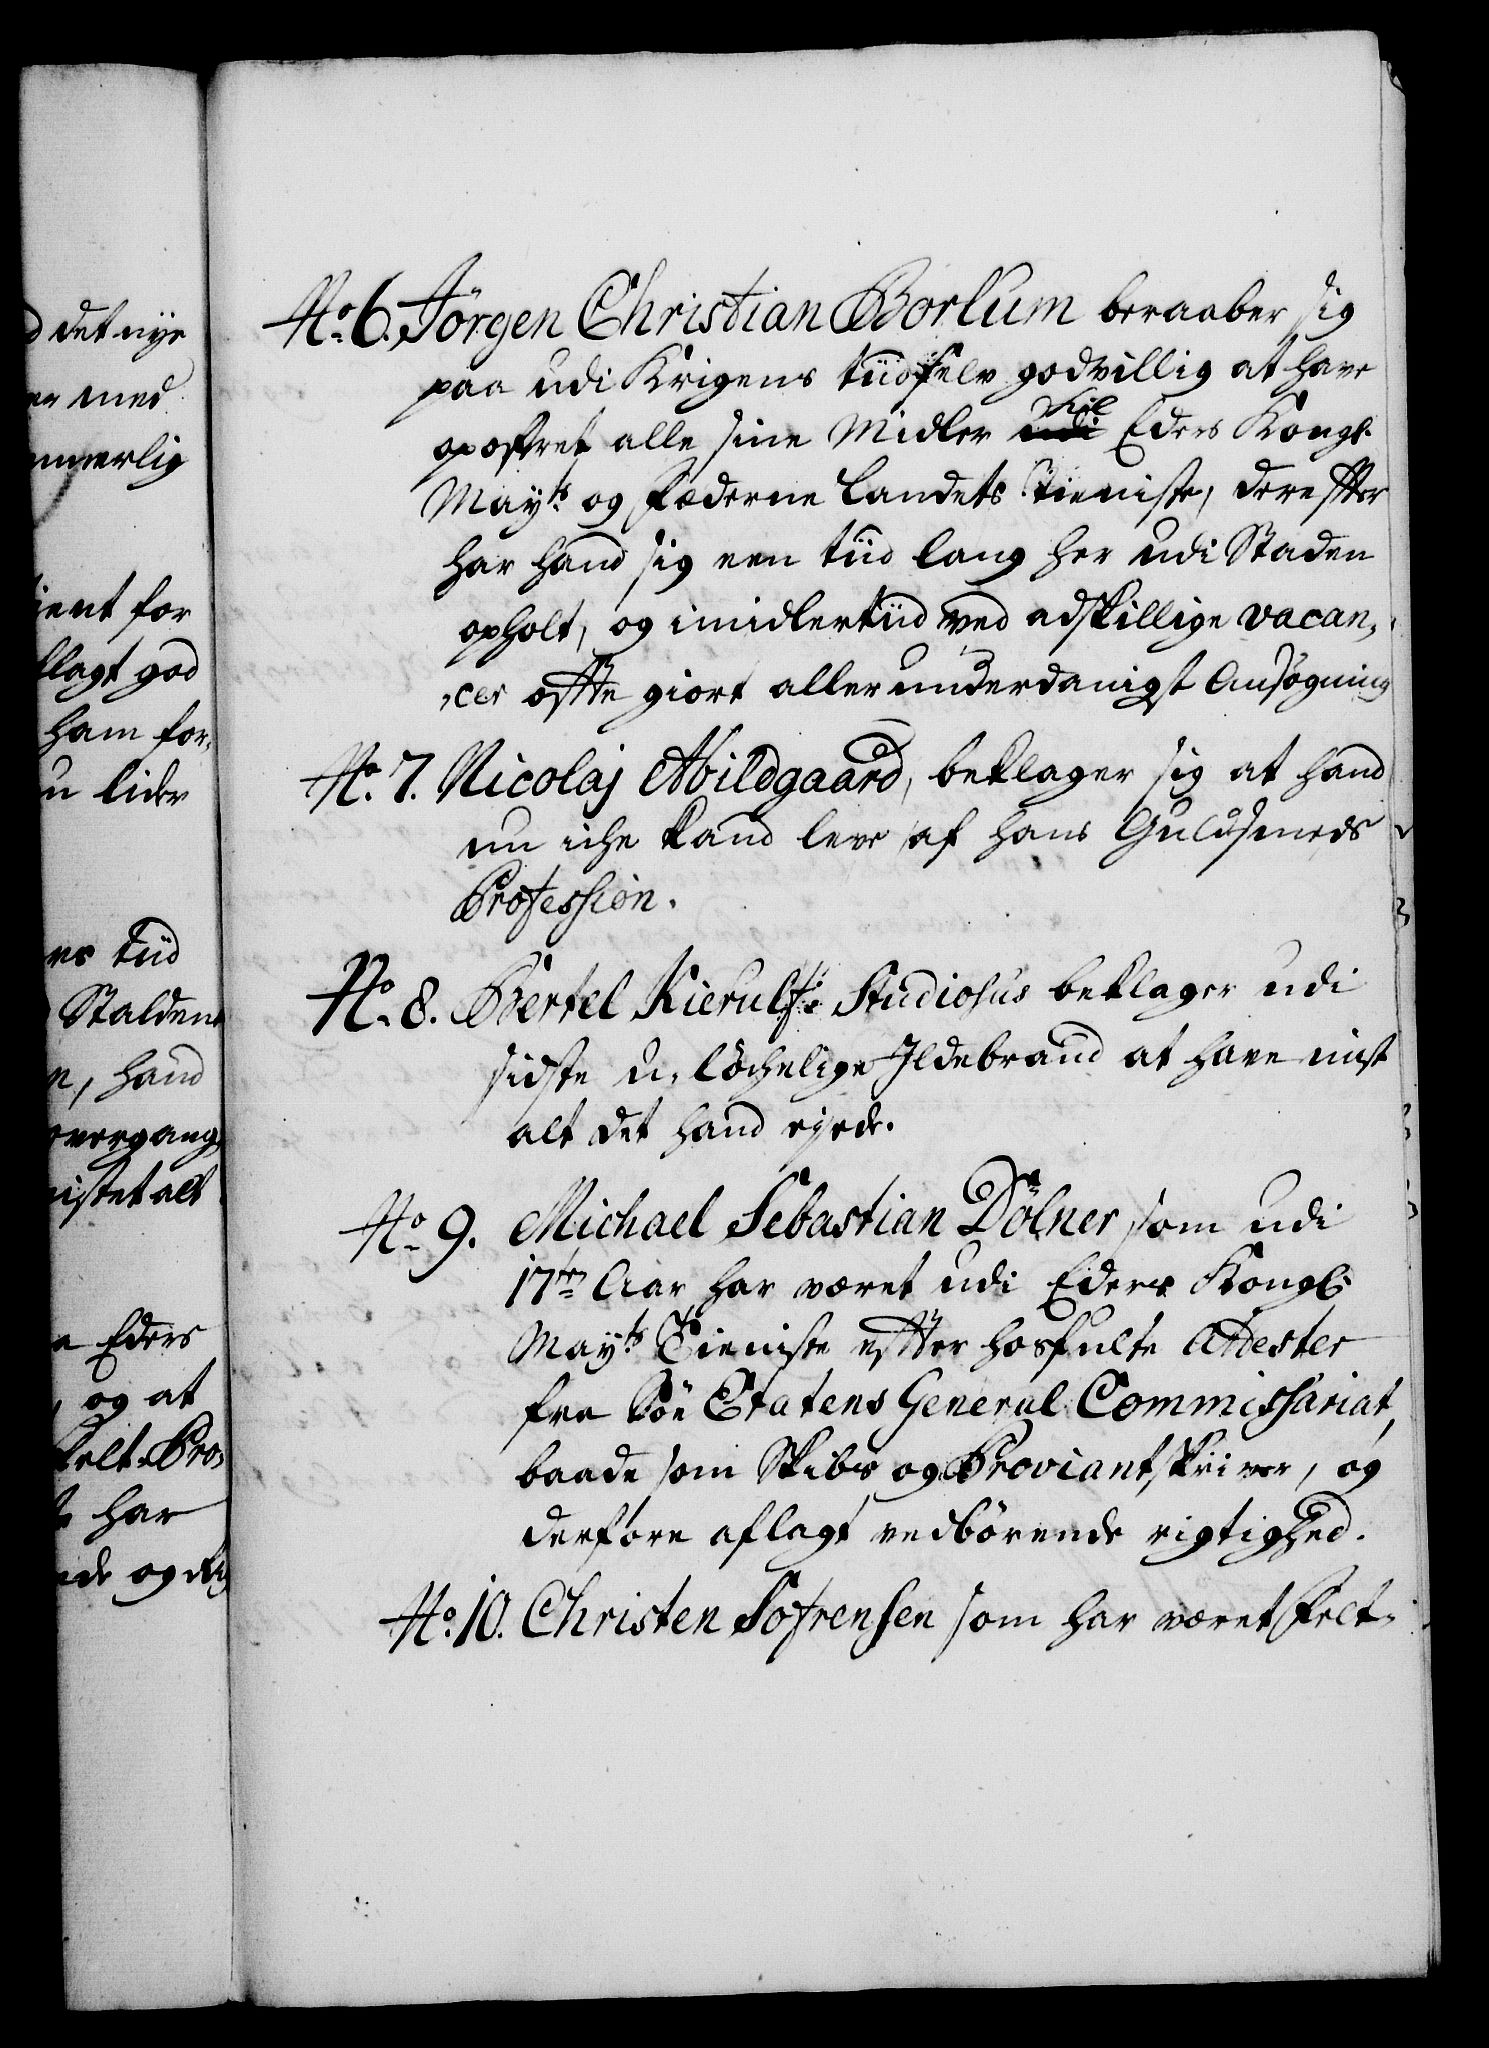 d det nye
er med
mmerlig
ient for
flagt god
ham for,
u lider
res tiid
Stalden
n, hand
overgang,
mistet alt
e Eders
, og at
felt Pro,
har
ide og
No 6. Jörgen Christian Borlum beraaber sig
paa udi Krigens tiid selv godvillig at have
opoffret alle sine Midler udi til Eders Kongl.
Mayts og fæderne Landets Tieniste, derefter
har hand sig een tiid lang her udi Staden
opholt, og imidlertiid ved adskillige vacan,
,cer offte giort allerunderdanigst Ansøgning
No. 7. Nicolaj Abildgaard, beklager sig at hand
nu iche kand leve af hans Guldsmeds
Profession.
No. 8. Bertel Kierulf: Studiosus beklager udi
sidste u, löchelige Ildebrand at have mist
alt det hand ejede.
No 9. Michael Sebastian Dölner som udi
17ten Aar har været udi Eders Kongl:
Mayts Tieniste effter hosfulte Attester
fra Söe Etatens General Commissariat,
baade som Skibs og Proviantskriver, og
derfore aflagt vedbörende rigtighed.
No. 10. Christen Sofrensen som har været felt-